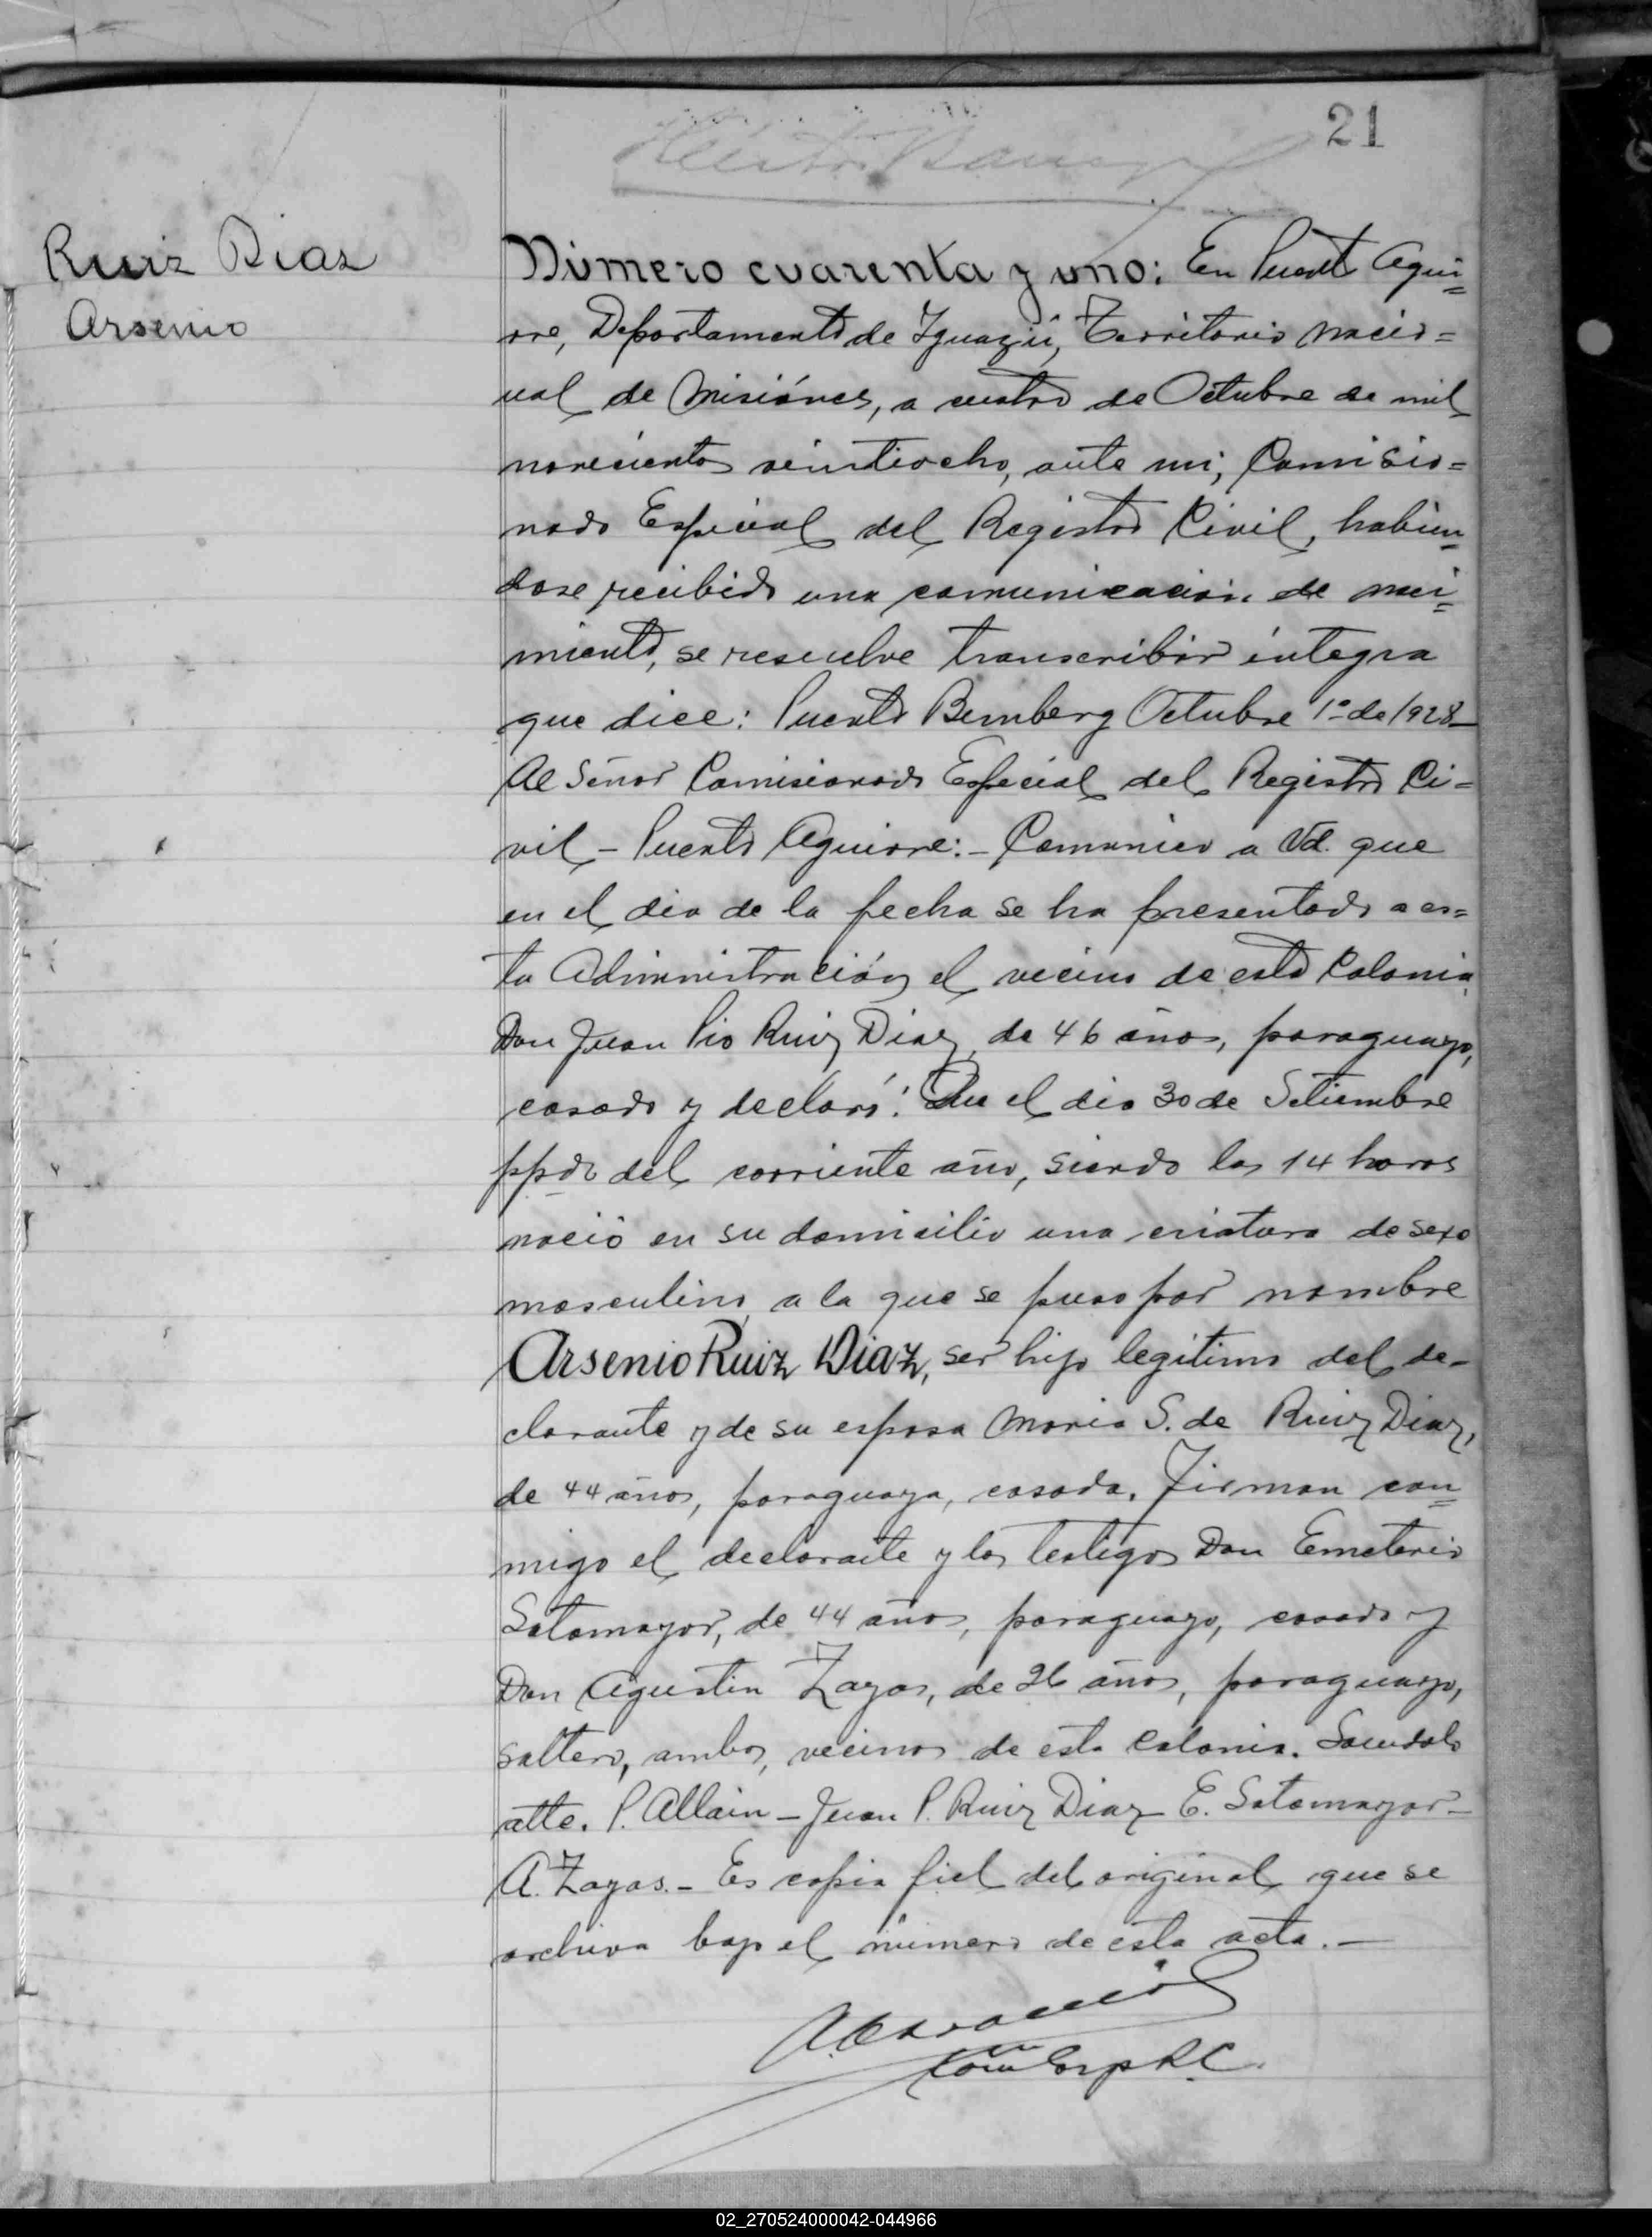 21
Ruiz Dias
Arsenio
Número cuarenta y uno: En Puerto Agui=
rre, Departamento de Yguazú, Territorio nacio=
nal de Misiónes, a cuatro de Octubre de mil
novecientos veintiocho, ante mi, Comisio=
nado Especial del Registro Civil, habien=
dose recibido una comunicación de naci=
miento, se resuelve transcribir integra
que dice: Puerto Bemberg Octubre 1º de 1928_
Al Señor Comisionado Especial del Registro Ci=
vil - Puerto Aguirre:- Comunico a Vd. que
en el dia de la fecha se ha presentado a es=
ta Administración el vecino de esta Colonia
Don Juan Pio Ruiz Diaz, de 46 años, paraguayo,
casado y declaró: Que el dia 30 de Setiembre
ppdo del corriente año, siendo las 14 horas
nació en su domicilio una criatura de sexo
masculino, a la que se puso por nombre
Arsenio Ruiz Diaz, ser hijo legitimo del de-
clarante y de su esposa Maria S. de Ruiz Diaz,
de 44 años, paraguaya, casada. Firman con=
migo el declarante y los testigos Don Emeterio
Sotomayor, de 44 años, paraguayo, casado y
Don Agustin Zayas, de 26 años, paraguayo,
soltero, ambos, vecinos de esta Colonia. Saludolo
atte. P. Allain - Juan P. Ruiz Diaz - E. Sotomayor -
A. Zayas.- Es copia fiel del original que se
archiva bajo el número de esta acta.-
Com Esp R.C.
02_270524000042-044966